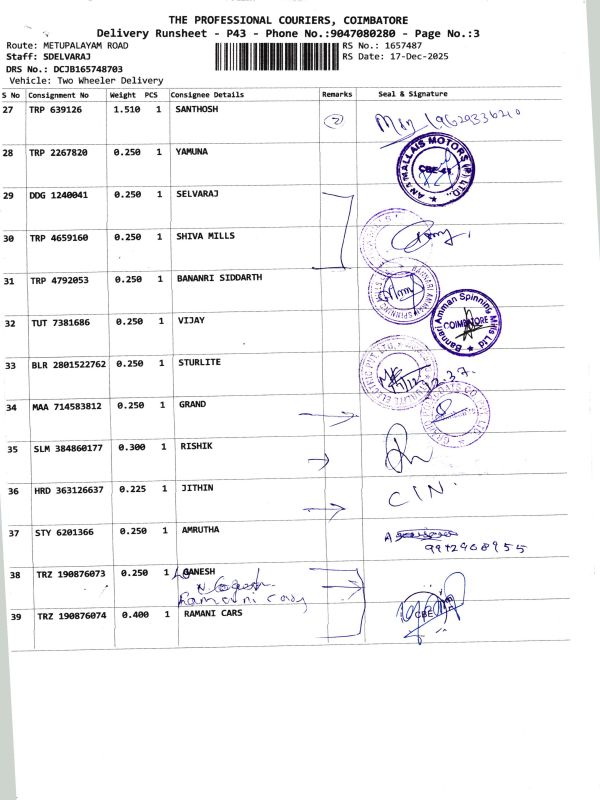 THE PROFESSIONAL COURIERS, COIMBATORE
Delivery Runsheet - P43 - Phone No.:9047080280 - Page No.:3
Route: METUPALAYAM ROAD RS No.: 1657487
Staff: SDELVARAJ RS Date: 17-Dec-2025
DRS No.: DCJB165748703
Vehicle: Two Wheeler Delivery
S No Consignment No Weight PCS Consignee Details Remarks Seal & Signature
27 TRP 639126 1.510 1 SANTHOSH 2
28 TRP 2267820 0.250 1 YAMUNA
ANAMALLAIS MOTORS (P) LTD., CBE-41
29 DDG 1240041 0.250 1 SELVARAJ
30 TRP 4659160 0.250 1 SHIVA MILLS
31 TRP 4792053 0.250 1 BANANRI SIDDARTH
32 TUT 7381686 0.250 1 VIJAY
Bannari Amman Spinning Mills Ltd COIMBATORE
33 BLR 2801522762 0.250 1 STURLITE
34 MAA 714583812 0.250 1 GRAND
35 SLM 384860177 0.300 1 RISHIK
36 HRD 363126637 0.225 1 JITHIN CIN.
37 STY 6201366 0.250 1 AMRUTHA
9942968955
38 TRZ 190876073 0.250 1 GANESH
Ramani cars
39 TRZ 190876074 0.400 1 RAMANI CARS CBE